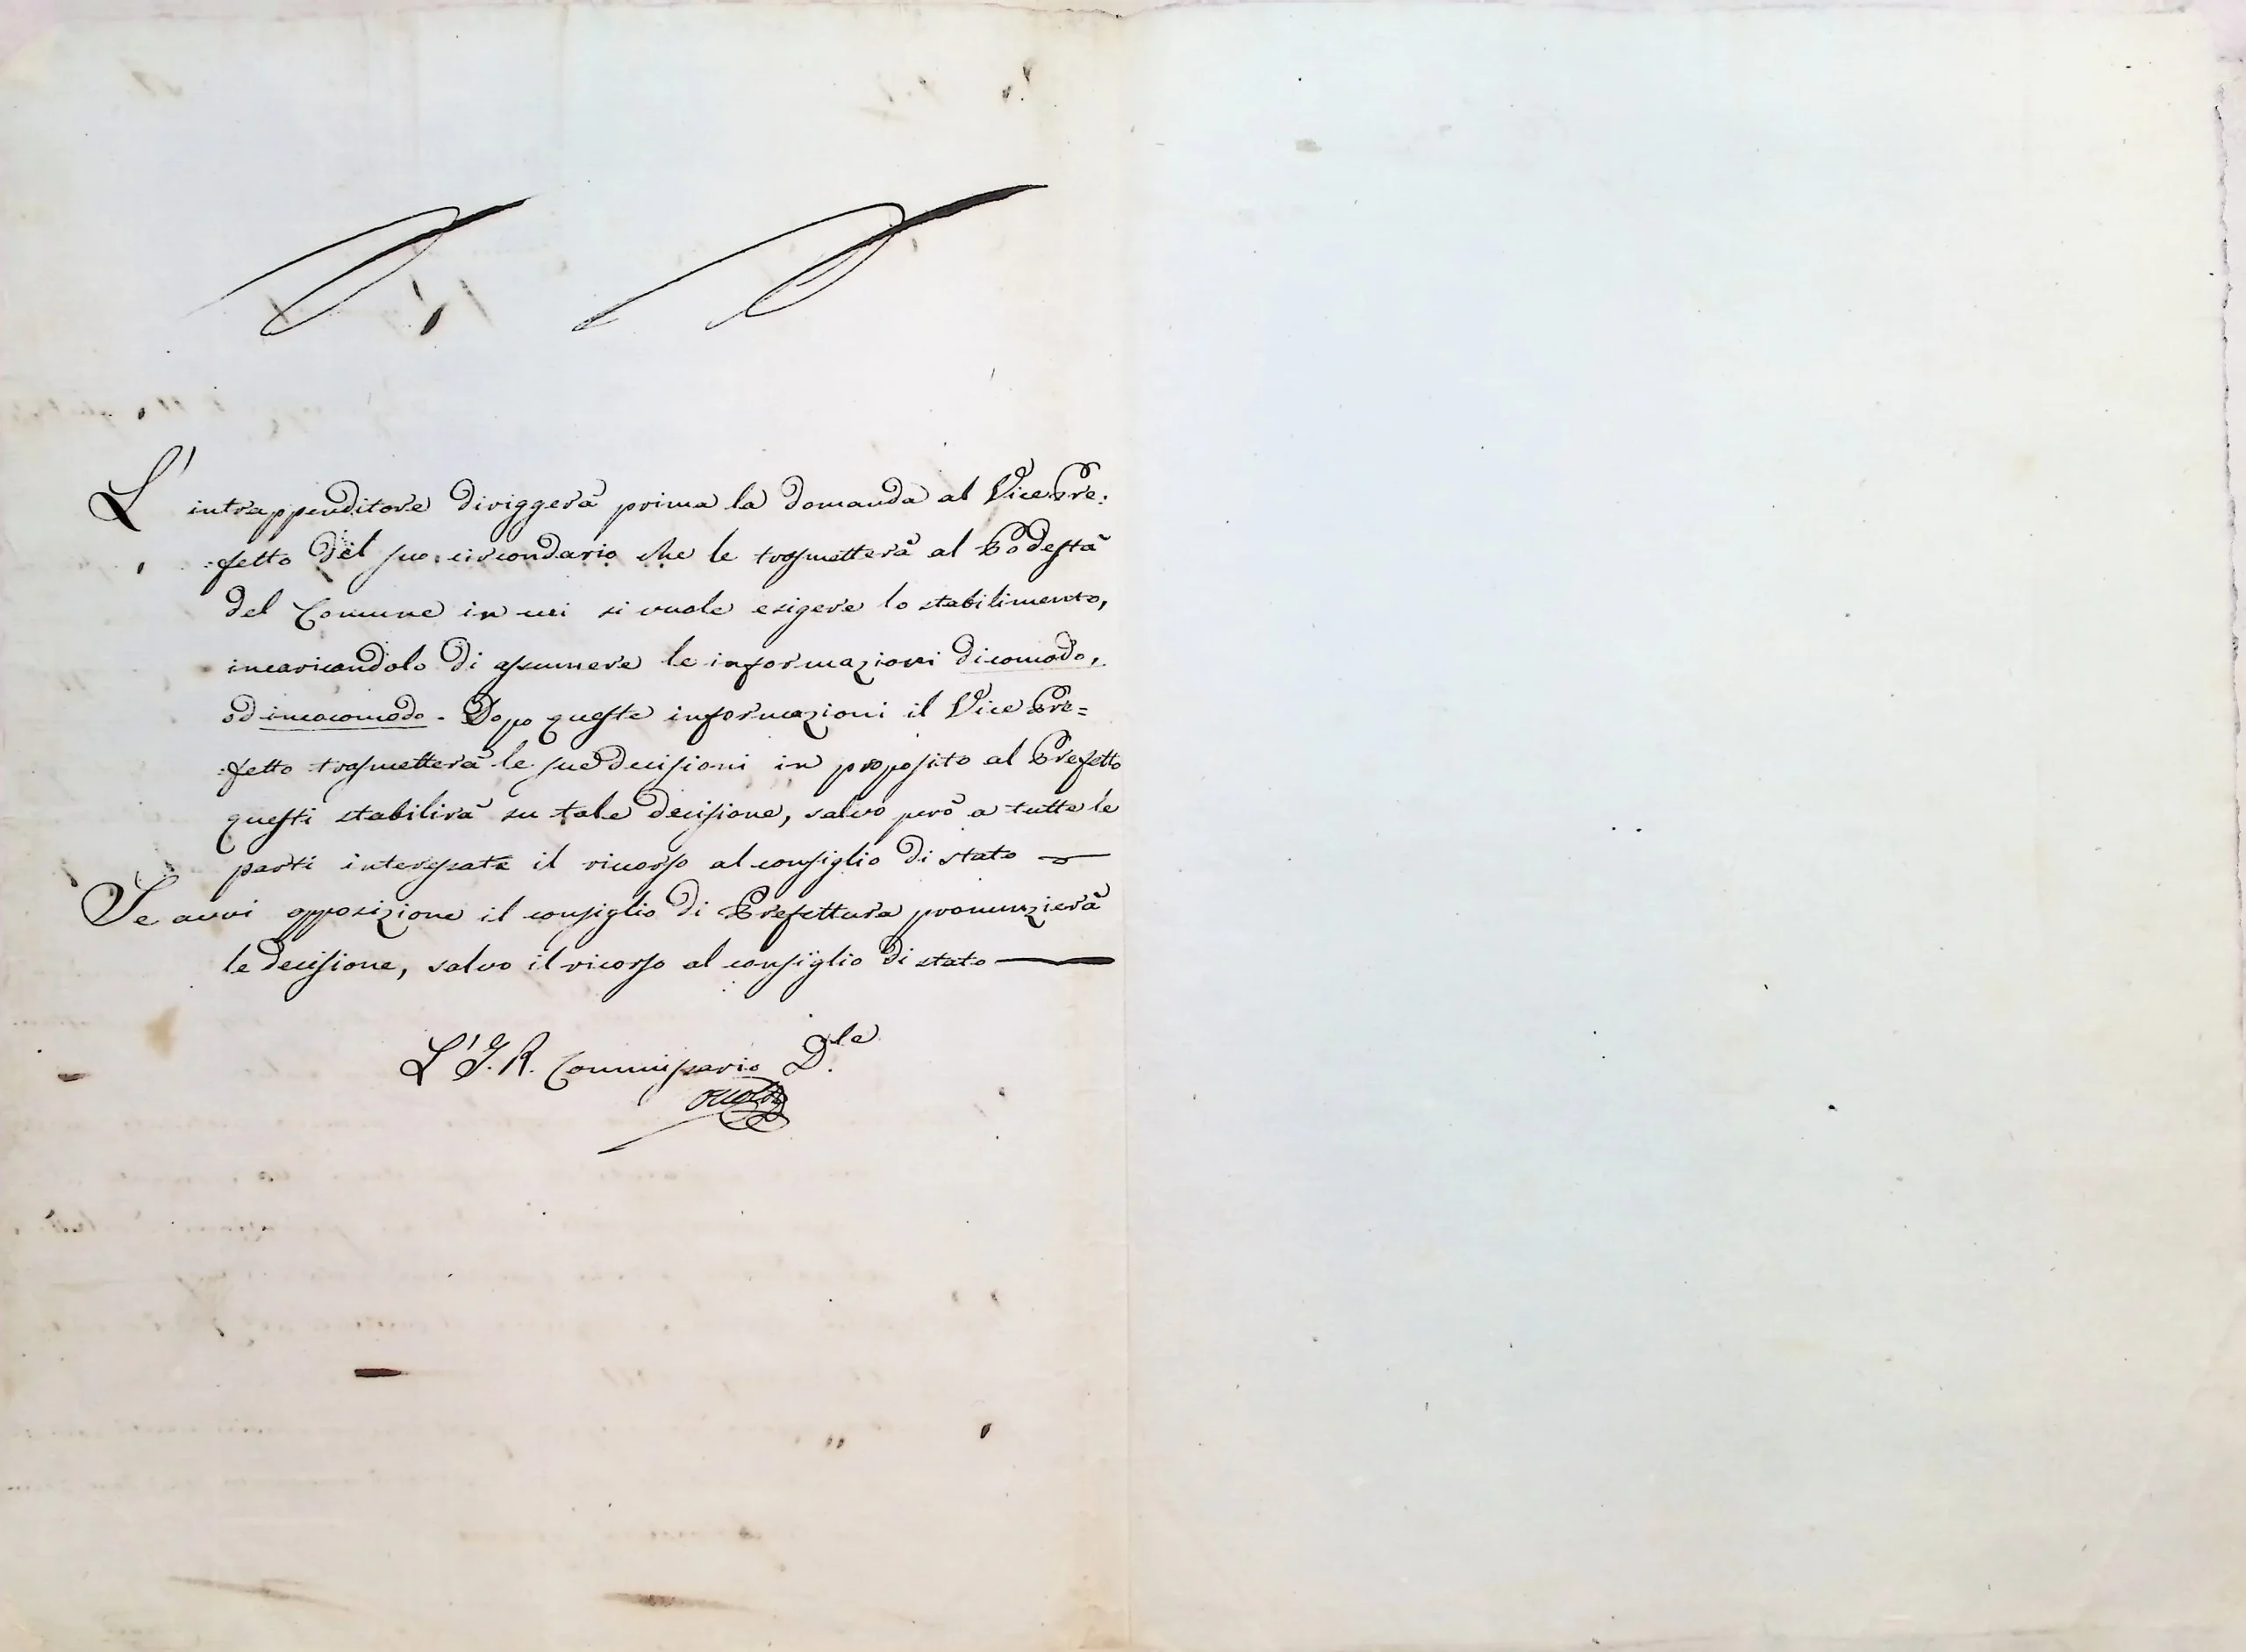 L' intrappenditore diriggerà prima la domanda al Vice Pre:
:fetto del suo circondario che le trasmetterà al Podestà
del Comune in cui si vuole esigere lo stabilimento,
incaricandolo di assumere le informazioni di comodo,
od incocomodo. Dopo queste informazioni il Vice Pre=
:fetto trasmetterà le sue decisioni in proposito al Prefetto
questi stabilirà su tale decisione, salvo però a tutte le
parti interessate il ricorso al consiglio di stato
Se avvi opposizione il consiglio di Prefettura pronunzierà
le decisione, salvo il ricorso al consiglio di stato
L'I. R. Commissario D.le